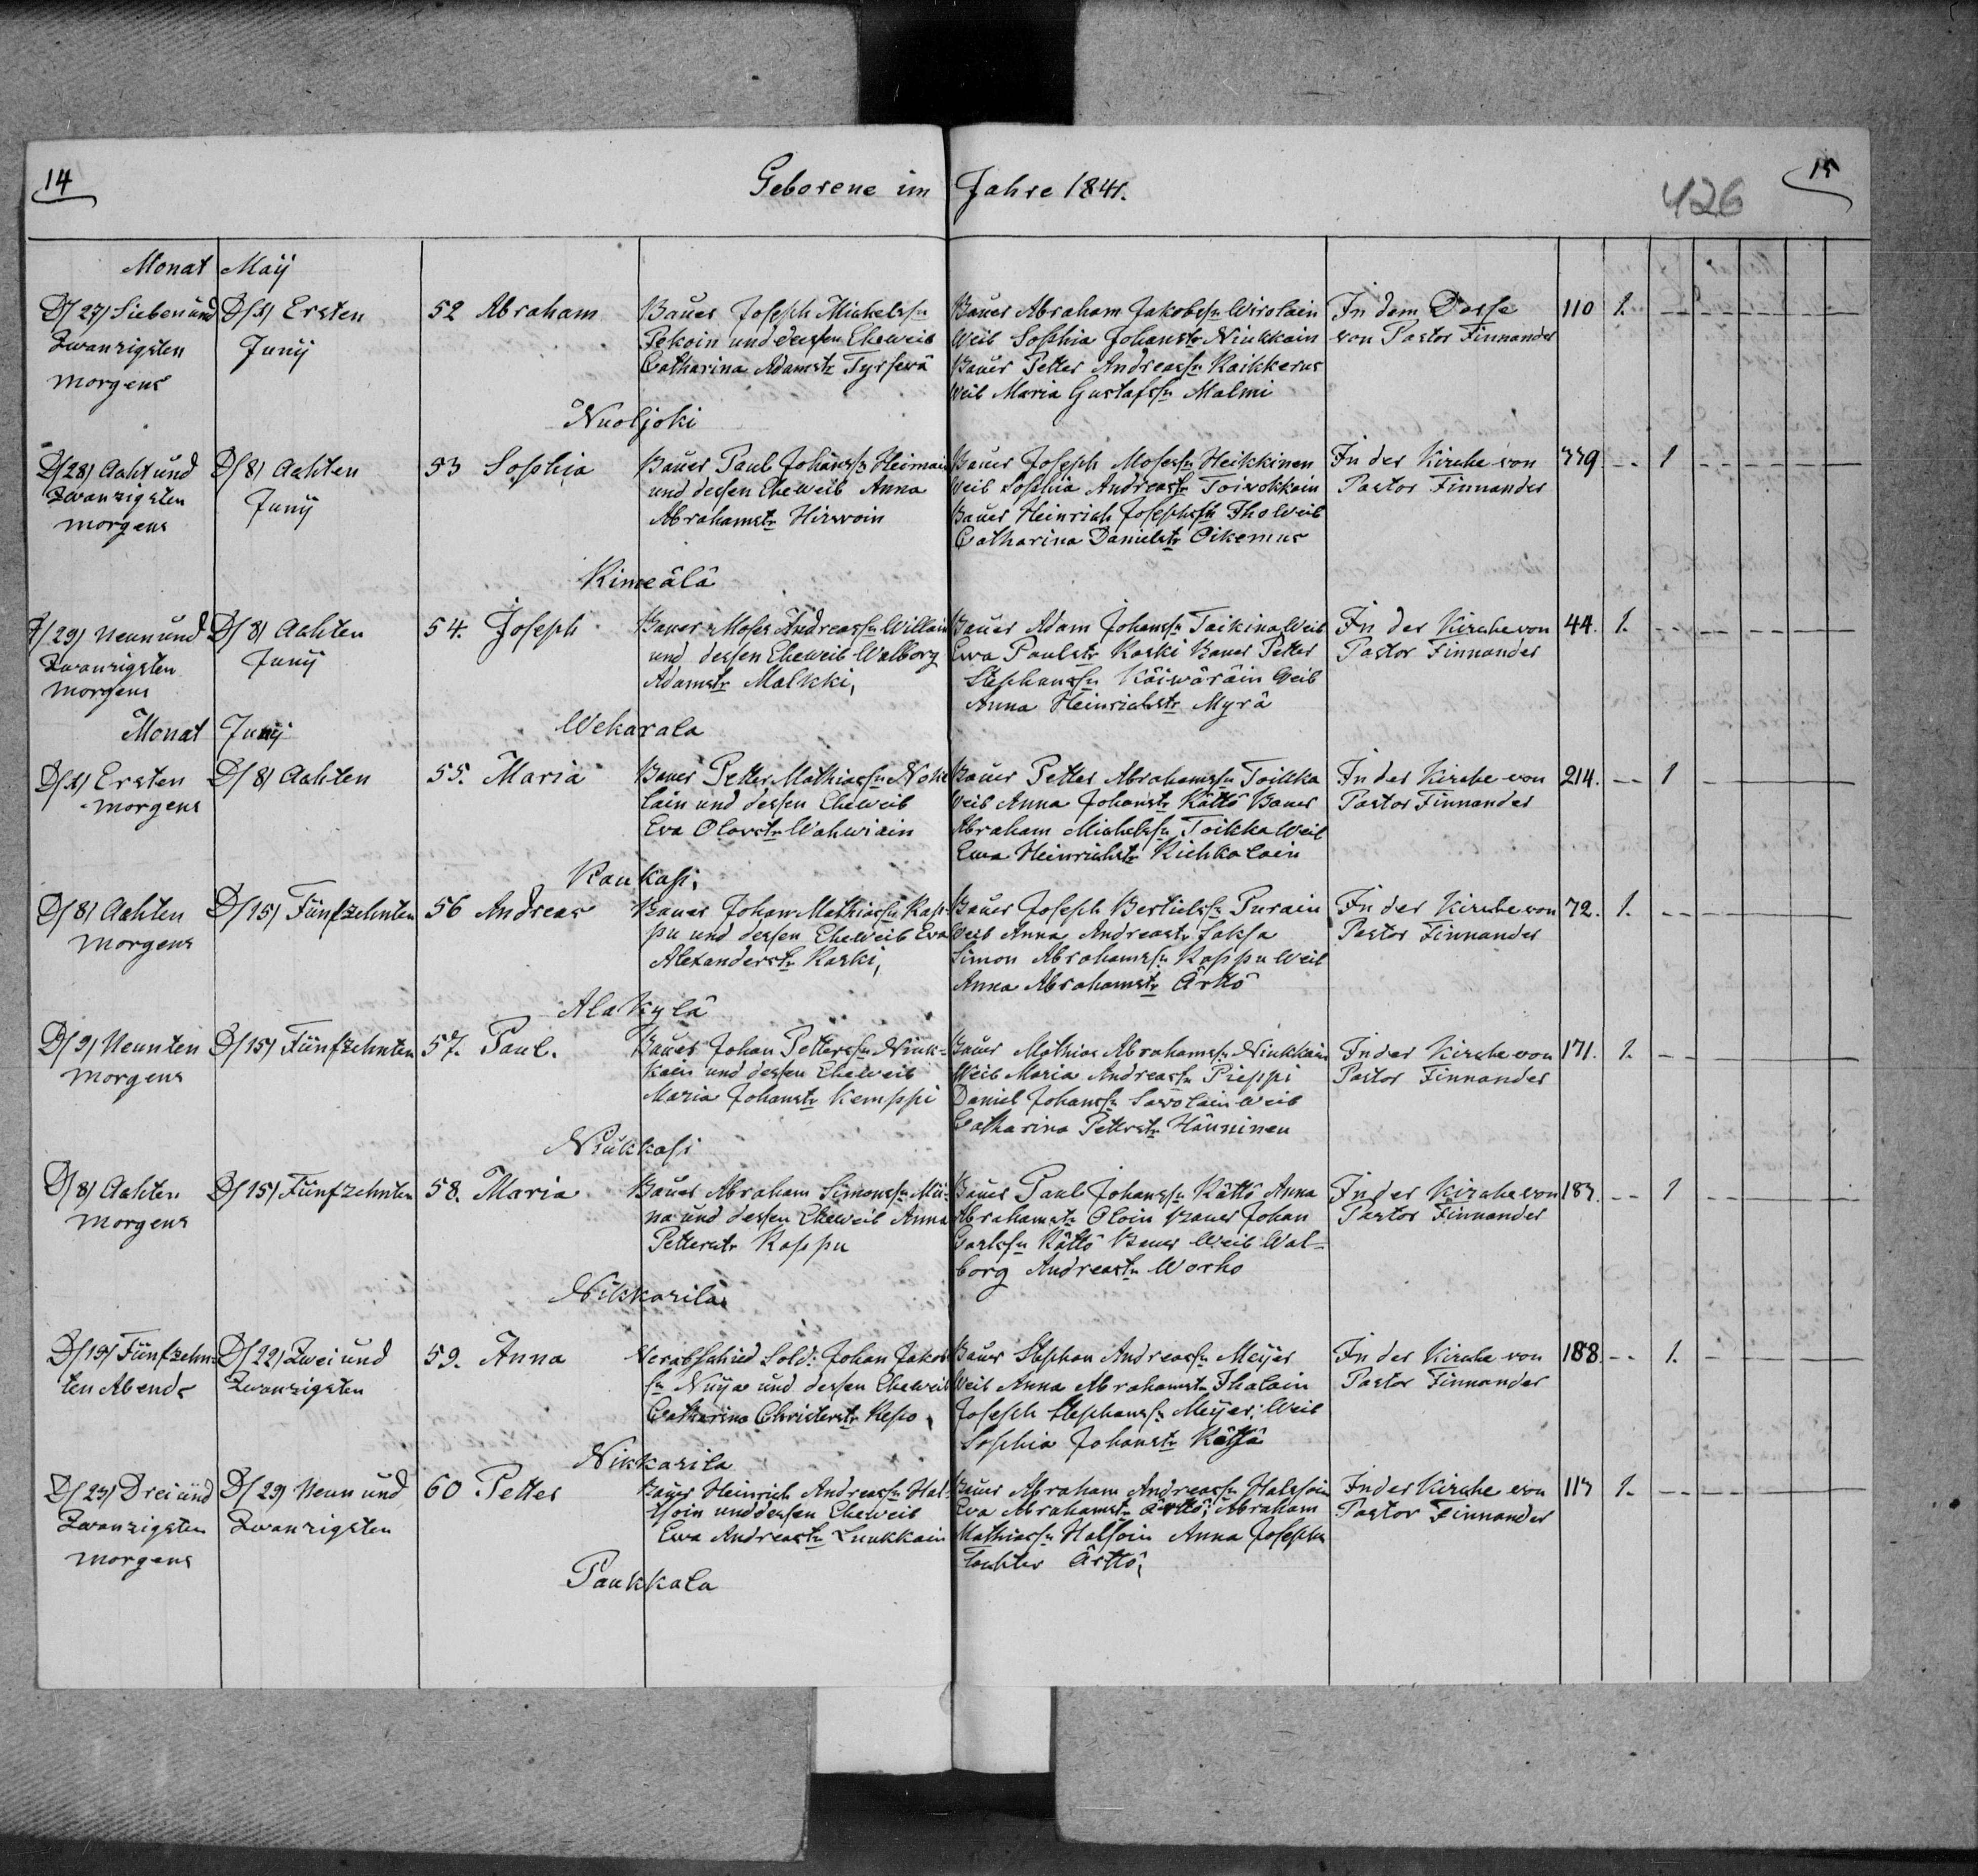 14
Geborene im Jahre 1841.
426
15
Monat Maij
D/27/ Sieben und
Zwanzigsten
morgens
D/1/ Ersten
Junij
52 Abraham
Bauer Joseph Michelssn
Pekoin und dessen Eheweib
Catharina Adamstr Tyrsewä
Bauer Abraham Jakobssn Wirolain
Weib Sophia Johanstr Niukkain
Bauer Petter Andreassn Kaikkerus
Weib Maria Gustafssn Malmi
In dem Dorfe
von Pastor Finnander
110 1.
Nuoljoki
D/28/ Acht und
Zwanzigsten
morgens
D/8/ Achten
Junij
53 Sophia
Bauer Paul Johanssn Heimain
und dessen Eheweib Anna
Abrahamstr Hirwoin
Bauer Joseph Mosessn Heikkinen
Weib Sophia Andreastr Toiwokkain
Bauer Heinrich Josephssn Iho Weib
Catharina Danielstr Oikemus
In der Kirche von
Pastor Finnander
779 -- 1
Kimeälä
D/29/ Neun und
Zwanzigsten
morgens
D/8/ Achten
Junij
54. Joseph
Bauer Moses Andreassn Willain
und dessen Eheweib Walborg
Adamstr Malkki,
Bauer Adam Johanssn Taikina Weib
Ewa Paulstr Koski Bauer Petter
Stephanssn Käiwäräin Weib
Anna Heinrichstr Myrä
In der Kirche von
Pastor Finnander
44. 1.
Monat Junij
Wekarala
D/1/ Ersten
morgens
D/8/ Achten
55. Maria
Bauer Petter Mathiassn Noke
lain und dessen Eheweib
Eva Olovstr Wahwiain
Bauer Petter Abrahamssn Toikka
Weib Anna Johanstr Kättö Bauer
Abraham Michelssn Toikka Weib
Ewa Heinrichstr Kichkolain
In der Kirche von
Pastor Finnander
214. -- 1
Kaukasi,
D/8/ Achten
morgens
D/15/ Fünfzehnten
56 Andreas
Bauer Johan Mathiassn Kap-
pu und dessen Eheweib Eva
Alexanderstr Koski,
Bauer Joseph Bertielssn Purain
Weib Anna Andreastr Saksa
Simon Abrahamssn Kappu Weib
Anna Abrahamstr Ärttö
In der Kirche von
Pastor Finnander
72. 1.
Alakylä
D/9/ Neunten
morgens
D/15/ Fünfzehnten
57. Paul.
Bauer Johan Petterssn Niuk-
kain und dessen Eheweib
Maria Johanstr Kemppi
Bauer Mathias Abrahamssn Niukkain
Weib Maria Andreassn Pieppi
Daniel Johanssn Sawolain Weib
Catharina Petterstr Hänninen
In der Kirche von
Pastor Finnander
171. 1.
Niukkasi
D/8/ Achten
morgens
D/15/ Fünfzehnten
58. Maria
Bauer Abraham Simonssn Mii-
na und dessen Eheweib Anna
Petterstr Kappu
Bauer Paul Johanssn Kättö Anna
Abrahamstr Oloin Bauer Johan
Carlssn Kättö Bauer Weib Wal-
borg Andreastr Worho
In der Kirche von
Pastor Finnander
187. -- 1
Nikkarila
D/15/ Fünfzehn-
ten Abends
D/22/ Zwei und
Zwanzigsten
59. Anna
Verabschied Sold: Johan Jakob
sn Nuija und dessen Eheweib
Catharina Christerstr Repo,
Bauer Stephan Andreassn Meijer
Weib Anna Abrahamstr Ihalain
Joseph Stephanssn Meijer Weib
Sophia Johanstr Kättö
In der Kirche von
Pastor Finnander
188. -- 1.
Nikkarila
D/23/ Drei und
Zwanzigsten
morgens
D/29/ Neun und
Zwanzigsten
60 Petter
Bauer Heinrich Andreassn Hal-
tsoin und dessen Eheweib
Ewa Andreastr Luukkain
Bauer Abraham Andreassn Halssoin
Eva Abrahamstr Ärttö; Abraham
Mathiassn Halsoin Anna Josephs
Tochter Ärttö,
In der Kirche von
Pastor Finnander
117 1.
Paukkala